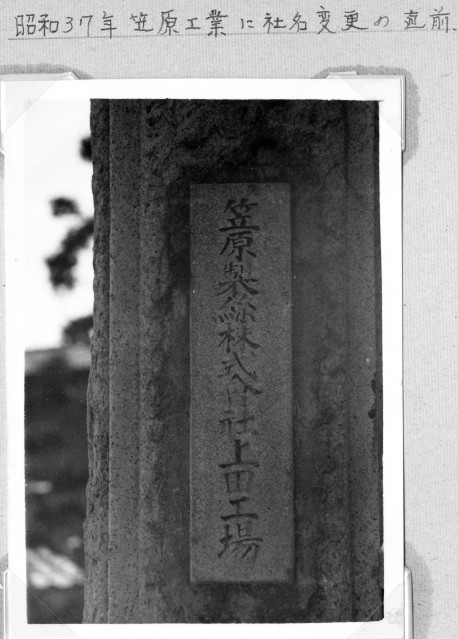 昭和37年 笠原工業に社名変更の直前.
笠原製絲株式会社上田工場